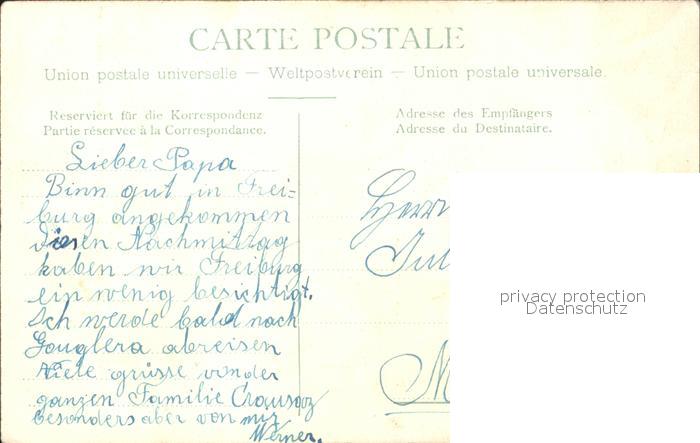 CARTE POSTALE
Union postale universelle — Weltpostverein — Union postale universale.
Reserviert für die Korrespondenz
Partie réservée à la Correspondance.
Adresse des Empfängers
Adresse du Destinataire.
Lieber Papa
Binn gut in Frei=
burg angekommen
diesen Nachmittag
haben wir Freiburg
ein wenig besichtigt.
Ich werde bald nach
abreisen
Viele grüsse von der
ganzen Familie
besonders aber von mir
Werner.
Herr
Jul
M
privacy protection
Datenschutz